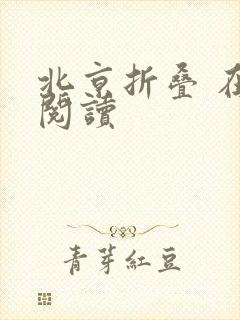 北京折叠 在
閱讀
青芽紅豆